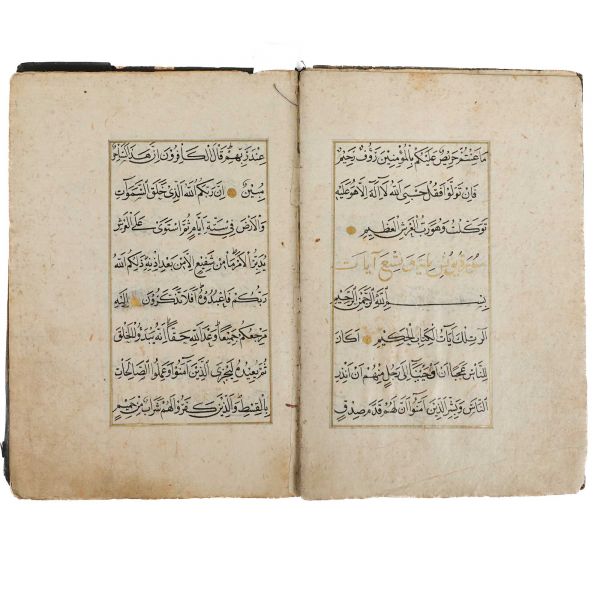 ما عنتم حريص عليكم بالمؤمنين رؤف رحيم
فان تولوا فقل حسبى الله لا اله الا هو عليه
توكلت وهو رب العرش العظيم
سورة يونس مائة وتسع آيات
بسم الله الرحمن الرحيم
الر تلك ايات الكتاب الحكيم اكان
للناس عجبا ان اوحينا الى رجل منهم ان انذر
الناس وبشر الذين آمنوا ان لهم قدم صدق
عند ربهم قال الكافرون ان هذا لساحر
مبين ان ربكم الله الذى خلق السموات
والارض فى ستة ايام ثم استوى على العرش
يدبر الامر ما من شفيع الا من بعد اذنه ذلكم الله
ربكم فاعبدوه افلا تذكرون اليه
مرجعكم جميعا وعد الله حقا انه يبدؤ الخلق
ثم يعيده ليجزى الذين آمنوا وعملوا الصالحات
بالقسط والذين كفروا لهم شراب من حميم